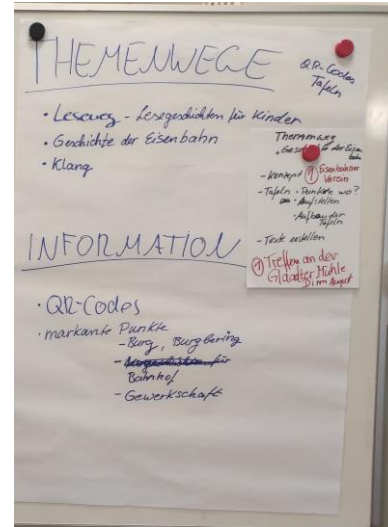 THEMENWEGE
QR-Codes
Tafeln
• Leseweg - Lesegeschichten für Kinder
• Geschichte der Eisenbahn
• Klang
Themenweg
der Eisen
bahn
- Konzept ① Eisenbahner
Verein
- Tafeln • Punkte wo?
• Aufstellen
• Aufbau der
Tafeln
- Texte erstellen
① Treffen an der
Mühle
im August
INFORMATION
• QR-Codes
• markante Punkte
- Burg, Burgbering
-
Bahnhof
- Gewerkschaft